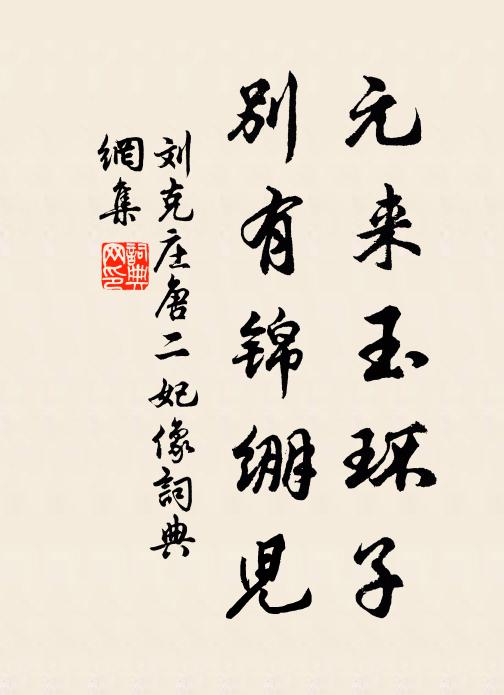 元来玉环子
别有锦绷儿
刘克庄唐二妃像詞典
網集
詞典网印